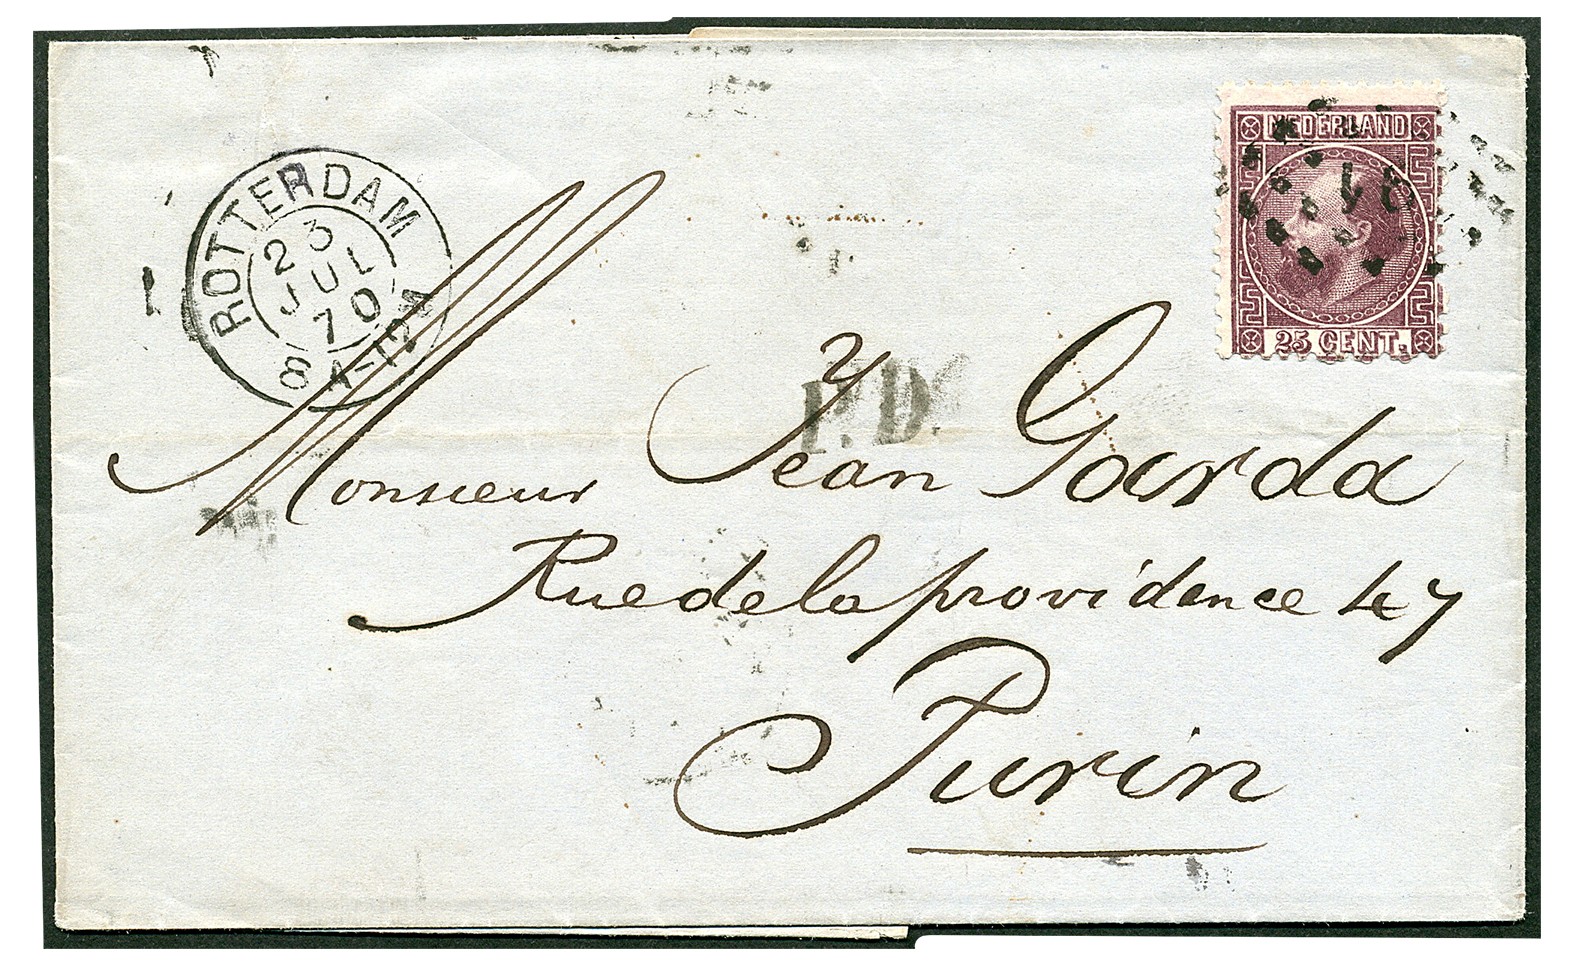 ROTTERDAM
23
JUL
70
8 A-12M
NEDERLAND
25 CENT.
P.D.
Monsieur Jean Garda
Rue de la providence 47
Turin